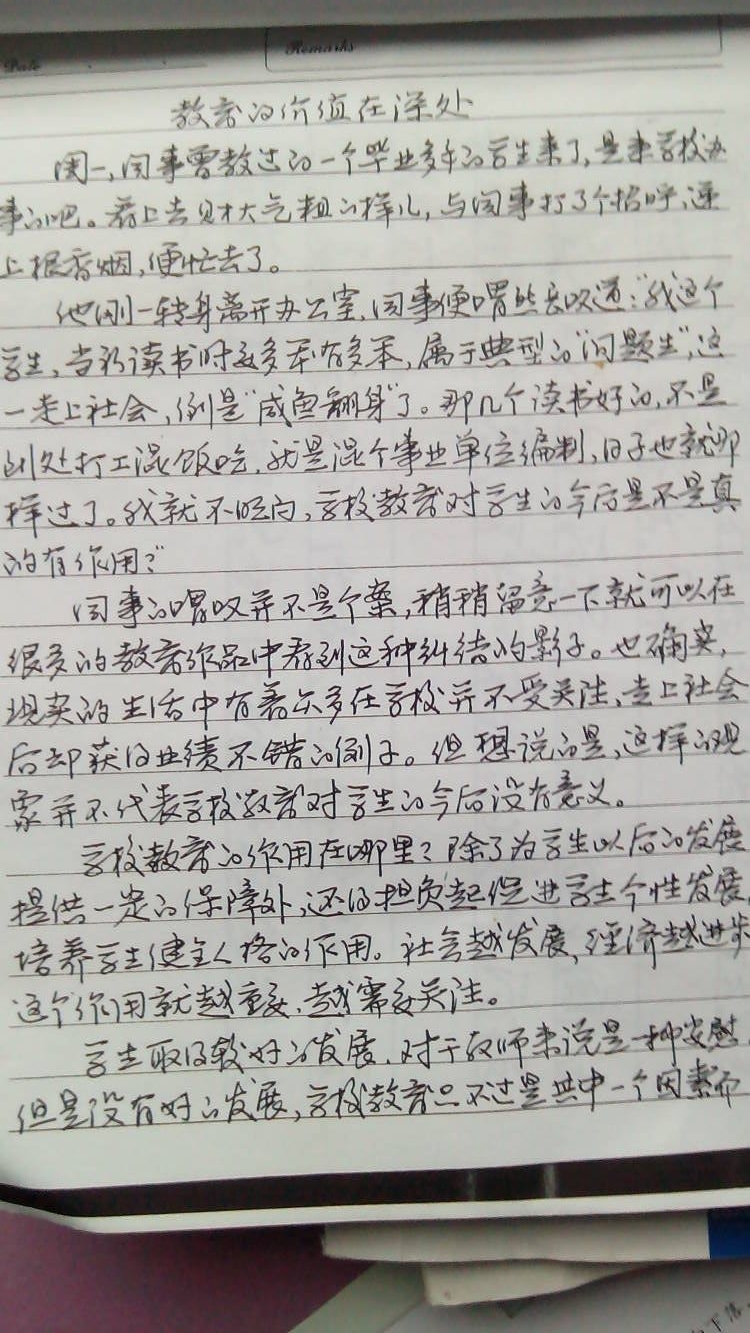 Date
Remarks
教育的价值在深处
周一,同事曾教过的一个毕业多年的学生来了,是来学校办
事的吧。看上去财大气粗的样儿,与同事打了个招呼,递
上根香烟,便忙去了。
他刚一转身离开办公室,同事便喟然长叹道:“我这个
学生,当初读书时要多笨有多笨,属于典型的“问题生”,这
一走上社会,倒是“咸鱼翻身”了。那几个读书好的,不是
到处打工混饭吃,就是混个事业单位编制,日子也就那
样过了。我就不明白,学校教育对学生的今后是不是真
的有作用?”
同事的喟叹并不是个案,稍稍留意一下就可以在
很多的教育作品中看到这种纠结的影子。也确实,
现实的生活中有着众多在学校并不受关注,走上社会
后却获得业绩不错的例子。但想说的是,这样的现
象并不代表学校教育对学生的今后没有意义。
学校教育的作用在哪里?除了为学生以后的发展
提供一定的保障外,还得担负起促进学生个性发展,
培养学生健全人格的作用。社会越发展,经济越进步
这个作用就越重要,越需要关注。
学生取得较好的发展,对于教师来说是一种安慰,
但是没有好的发展,学校教育只不过是其中一个因素而